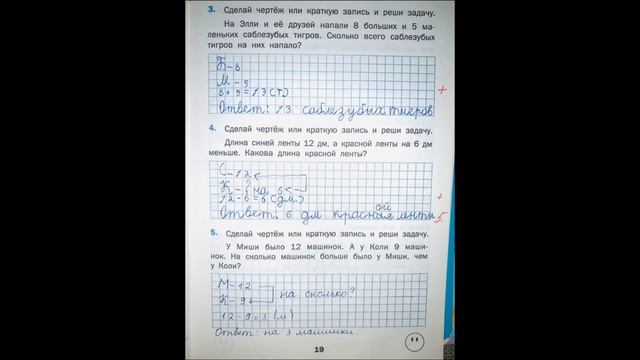 3. Сделай чертёж или краткую запись и реши задачу.
На Элли и её друзей напали 8 больших и 5 ма-
леньких саблезубых тигров. Сколько всего саблезубых
тигров на них напало?
Б – 8
М – 5
8 + 5 = 13 (т.)
Ответ: 13 саблезубых тигров
+
4. Сделай чертёж или краткую запись и реши задачу.
Длина синей ленты 12 дм, а красной ленты на 6 дм
меньше. Какова длина красной ленты?
С – 12
К – ? на 6 <
12 – 6 = 6 (дм.)
ой
Ответ: 6 дм красная ленты
+
5.
5. Сделай чертёж или краткую запись и реши задачу.
У Миши было 12 машинок. А у Коли 9 маши-
нок. На сколько машинок больше было у Миши, чем
у Коли?
М – 12
К – 9
на сколько?
12 – 9 = 3 (м)
Ответ: на 3 машинки.
19